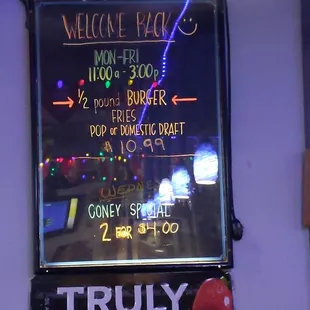 WELCOME BACK
MON-FRI
11:00a - 3:00p
→ 1/2 pound BURGER ←
FRIES
POP or DOMESTIC DRAFT
$10.99
CONEY SPECIAL
2 FOR $4.00
TRULY